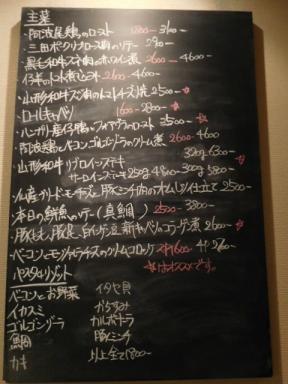 主菜
・阿波尾鶏のロースト 1800- 3100-
・三田ポークリブロース肉のソテー 2900-
・黒毛和牛スネ肉の赤ワイン煮 2600- 4600-
・仔羊の煮 2600- 4600-
・山形和牛 肉のトマト 煮 2500- ☆
・ロールキャベツ 1600- 2800- ☆
・ハンガリー産仔鴨とフォアグラのロースト 2500- ☆
・阿波鶏とベーコン、ゴルゴンゾーラのクリーム煮 2600- 4600
・山形和牛 リブロインステーキ 320g 6300-
サーロインステーキ 250g 4800- ☆
・仙産 モッツァレラチーズと豚ミンチ肉のオムレツ仕立て 2500-
・本日の鮮魚のソテー(真鯛) 2500- 3800-
・豚ほほ肉、豚足、白インゲン豆、新キャベツのコラーゲン煮 2600- ☆
・ベーコンとモッツァレラチーズのクリームコロッケ
☆はオススメです。
パスタ&リゾット
ベーコンとお野菜 イタヤ貝
イカスミ からすみ
ゴルゴンゾーラ カルボナーラ
鯛 豚ミンチ
カキ 以上全て1800-